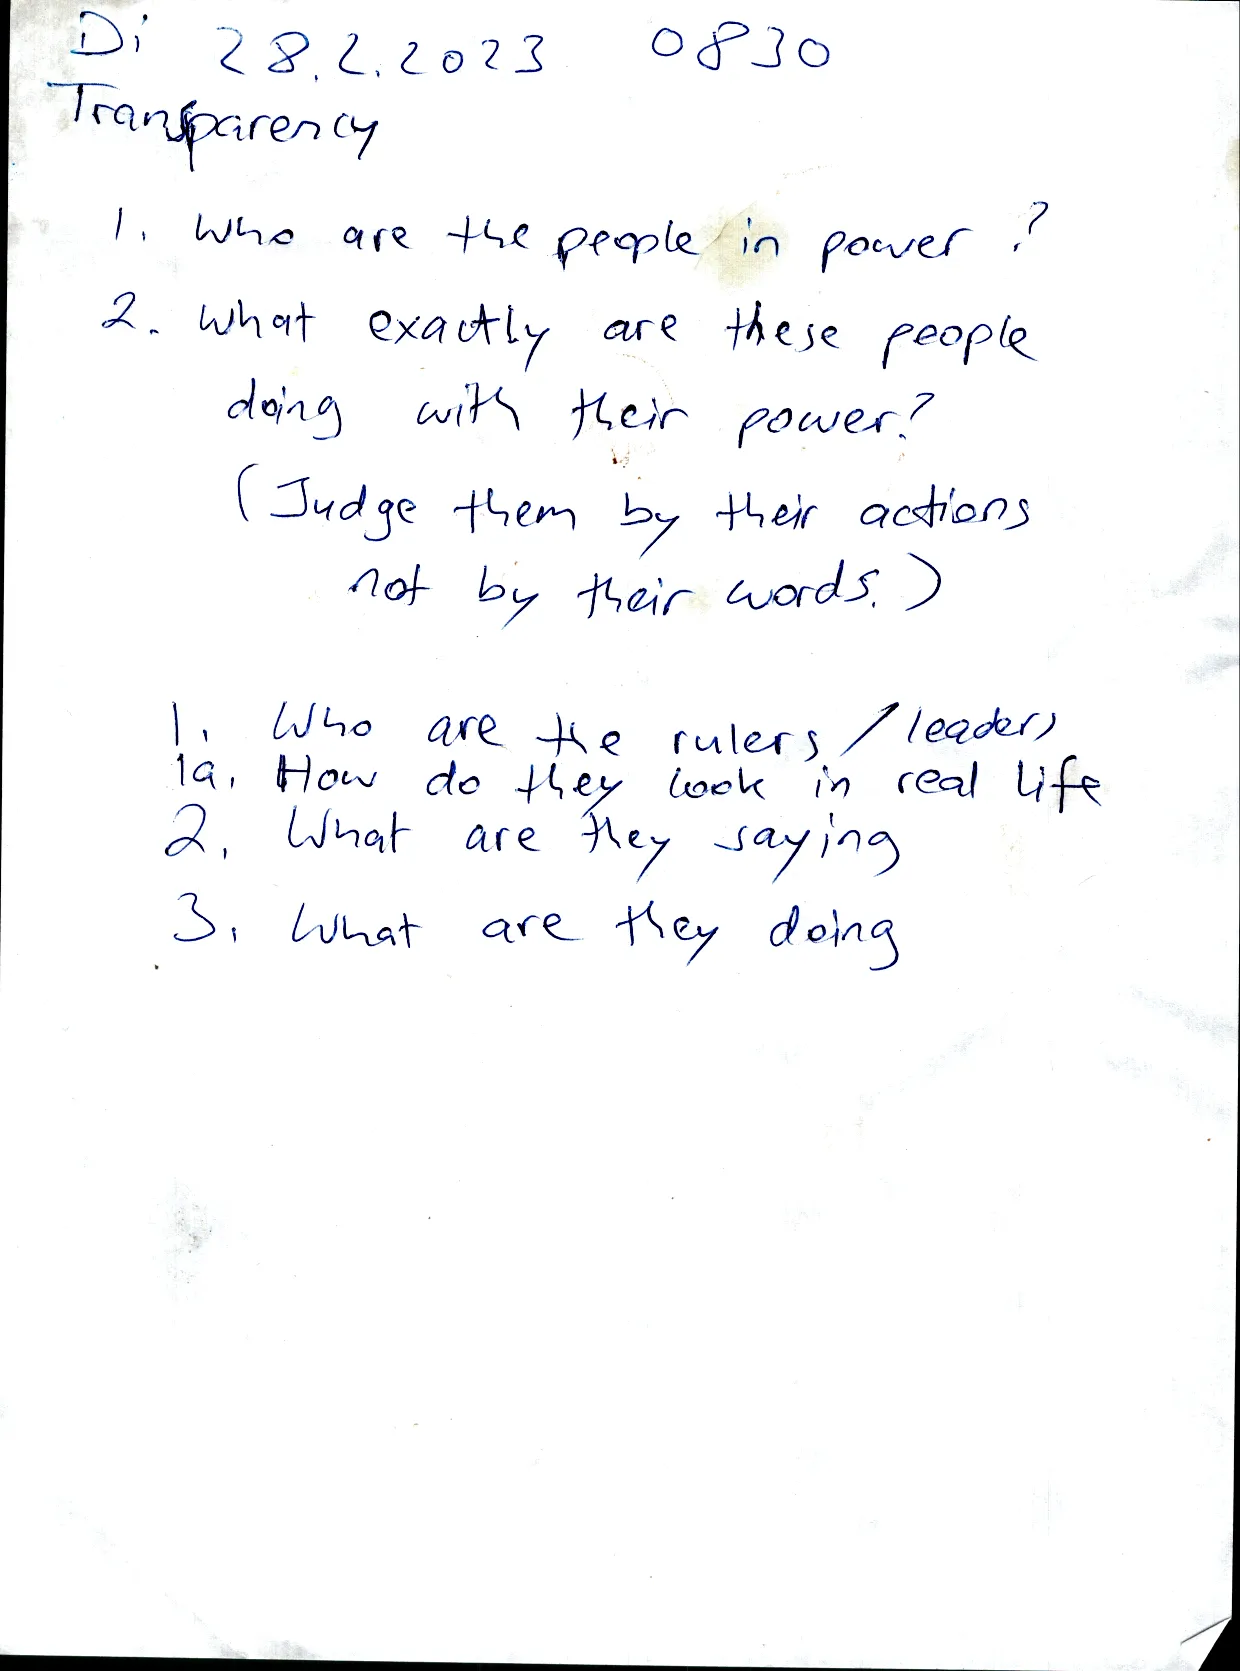 Di 28.2.2023 0830
Transparency
1. Who are the people in power?
2. What exactly are these people
doing with their power?
(Judge them by their actions
not by their words.)
1. Who are the rulers / leaders
1a. How do they look in real life
2. What are they saying
3. What are they doing